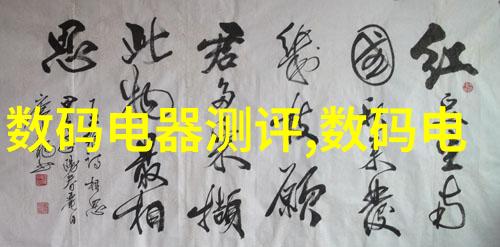 红豆生南
國春来發
幾枝願
君多采擷
此物最相
思
数码电器测评,数码电